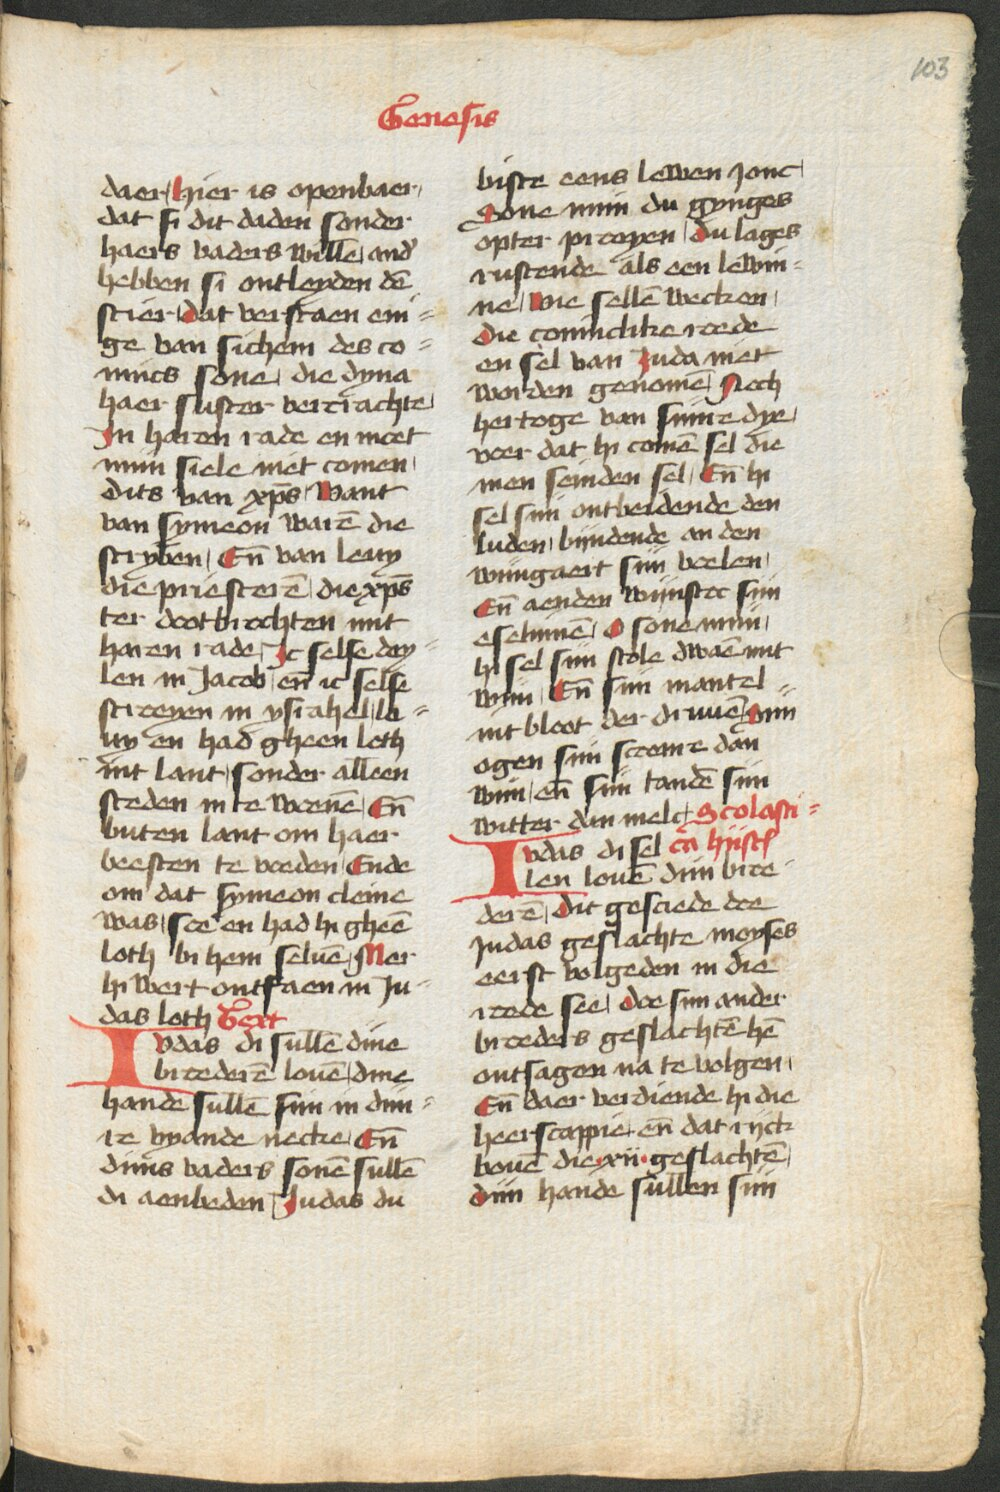 103
Genesis
daer hier is openbaer
dat si dit daden sonder
haers vaders willē and'
hebben si ontleyden dē
stier dat verstaen eni=
ge van sichem des co=
nincs sone die dyna
haer suster vercrachte
In haren rade en moet
mijn siele niet comen
dits van xp̄s want
van symeon warē die
scryben Eñ van leuy
die priesterē die xp̄s
ter doot brochten mit
haren rade Ic selse dey=
len in Jacob eñ ic selse
stroeyen in ysrahel le=
uy en had gheen loth
int lant sonder alleen
steden in te woenē Eñ
buten lant om haer
beesten te voeden Ende
om dat symeon cleine
was soe en had hi gheē
loth bi hem seluē Mer
hi wert ontfaen in Ju-
das loth Text
Iudas di sullē dine
broederē louē dine
handē sullē sijn in dijn=
re vyande necke Eñ
dijns vaders sonē sullē
di aenbeden Judas du
biste eens lewen jonc
Sone mijn du gynges
opter proyen Du lages
rustende als een lewin=
ne Wie sellē wecken
Die coninclike roede
en sel van Juda niet
worden genomē Noch
hertoge van sinre dye
voer dat hi comē sel die
men seinden sel Eñ hi
sel sijn ontbeidende den
luden bijndende an den
wijngaert sijn voelen
Eñ aenden wijnstoc sijn
eselinnē O sone mijn
hi sel sijn stole dwaē mit
wijn Eñ sijn mantel=
mit bloet der druuē Sijn
ogen sijn scoenre dan
wijn eñ sijn tandē sijn
witter dan melc Scolasti=
ca hijst
Iudas di sel
len louē dijn broe
derē Dit gesciede doe
Judas geslachte moyses
eerst volgeden in die
roede see doe sijn ander
broeders geslachtē hē
ontsagen na te volgen
Eñ daer verdiende hi die
heerscappie eñ dat rijck
bouē die xii geslachtē
dijn hande sullen sijn